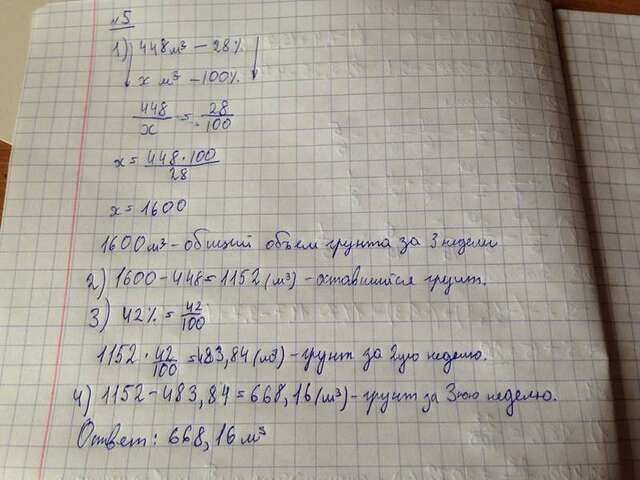 №5
1) 448 м³ – 28%
x м³ – 100%
448/x = 28/100
x = 448·100/28
x = 1600
1600 м³ – общий объем грунта за 3 недели
2) 1600 – 448 = 1152 (м³) – оставшийся грунт.
3) 42% = 42/100
1152 · 42/100 = 483,84 (м³) – грунт за 2ую неделю.
4) 1152 – 483,84 = 668,16 (м³) – грунт за 3юю неделю.
Ответ: 668,16 м³